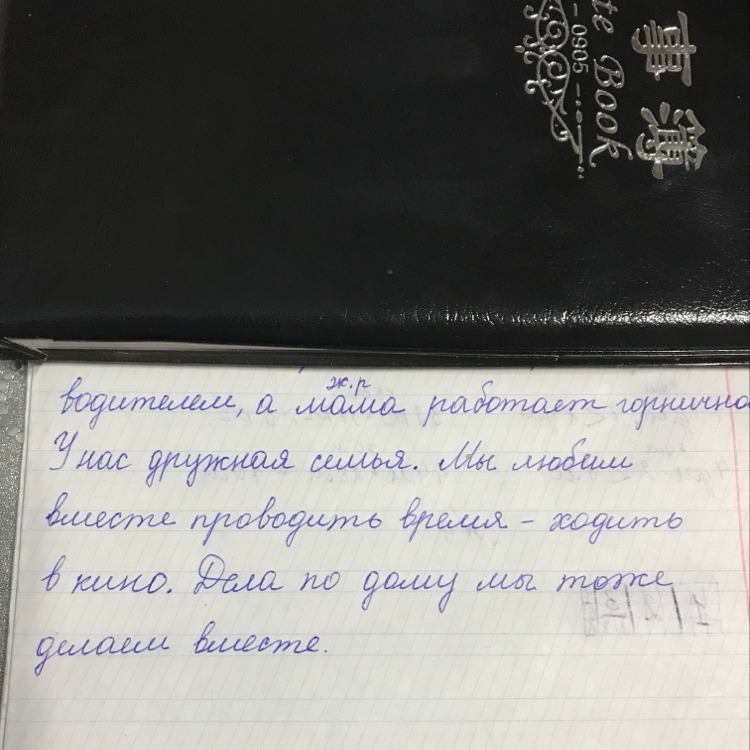 事簿
te Book
- 0905 -
ж.р
водителем, а мама работает горнична
У нас дружная семья. Мы любим
вместе проводить время - ходить
в кино. Дела по дому мы тоже
делаем вместе.
1 2 3